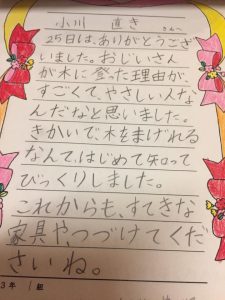 小川　直き
さんへ
25日は、ありがとうござ
いました。おじいさん
が木に登った理由が、
すごくて、やさしい人な
んだなと思いました。
きかいで木をまげれる
なんて、はじめて知って
びっくりしました。
これからも、すてきな
家具や、つづけてくだ
さいね。
3年　組